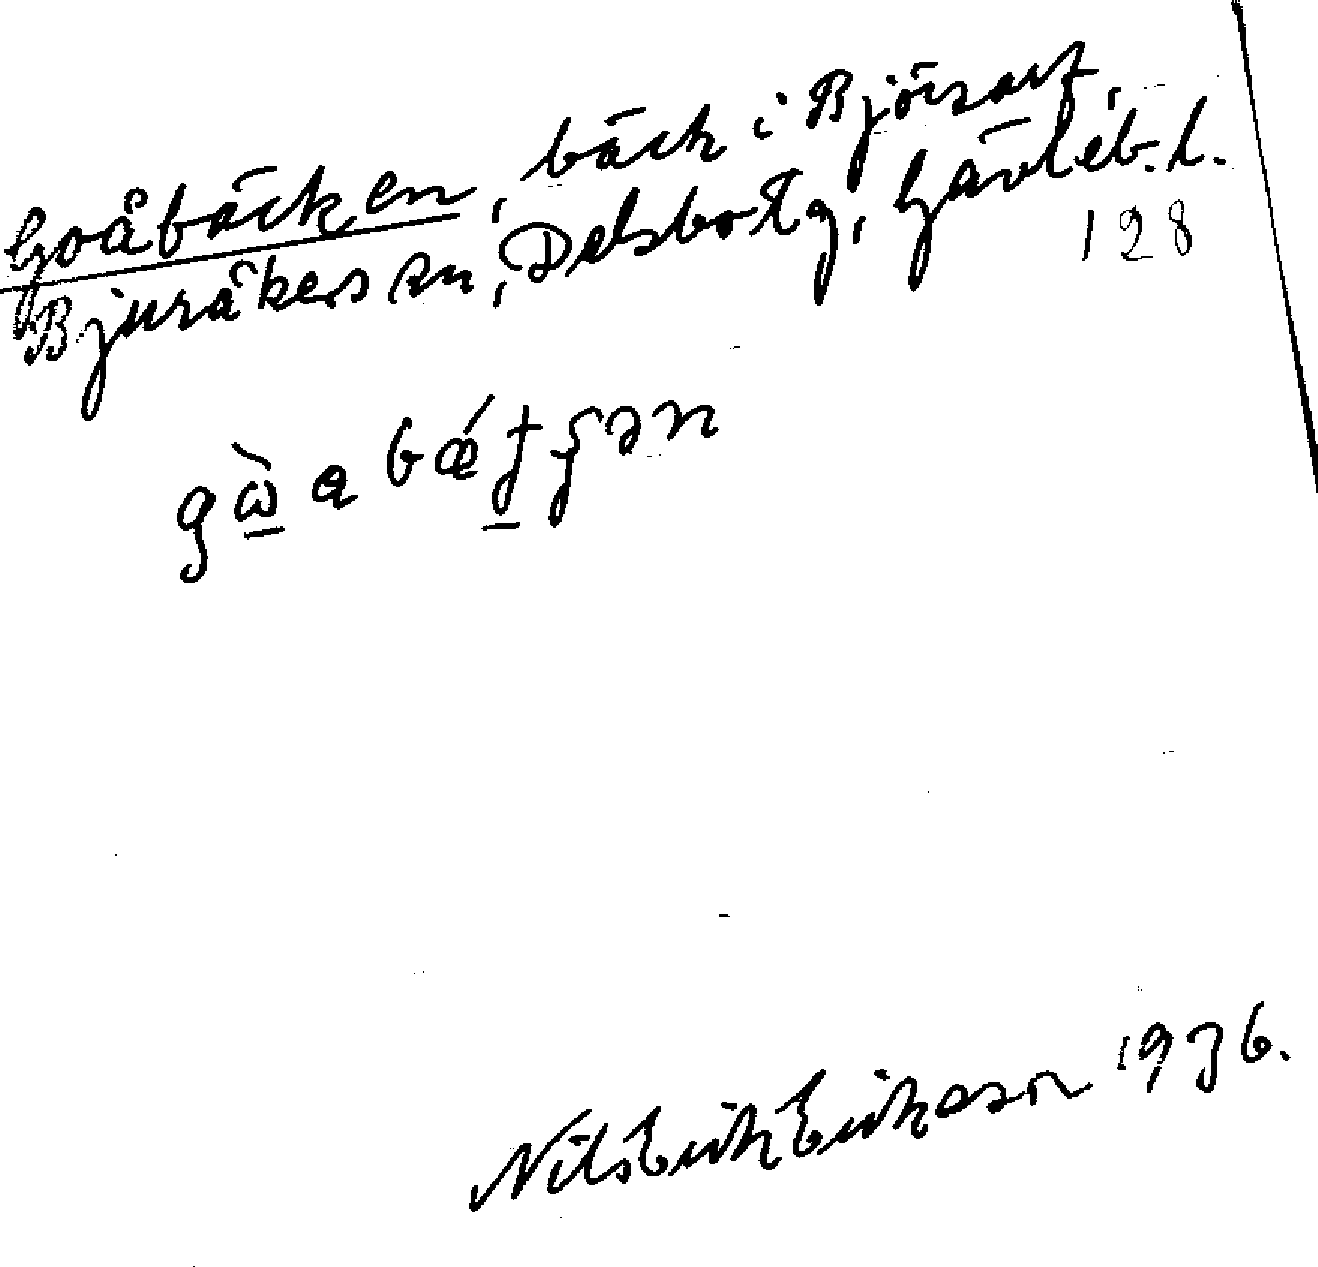 Goåbäcken, bäck i Björsarf,
Bjuråkers sn, Delsbo tg, Gävleb. l.
128
Nils Erik Eriksson 1936.